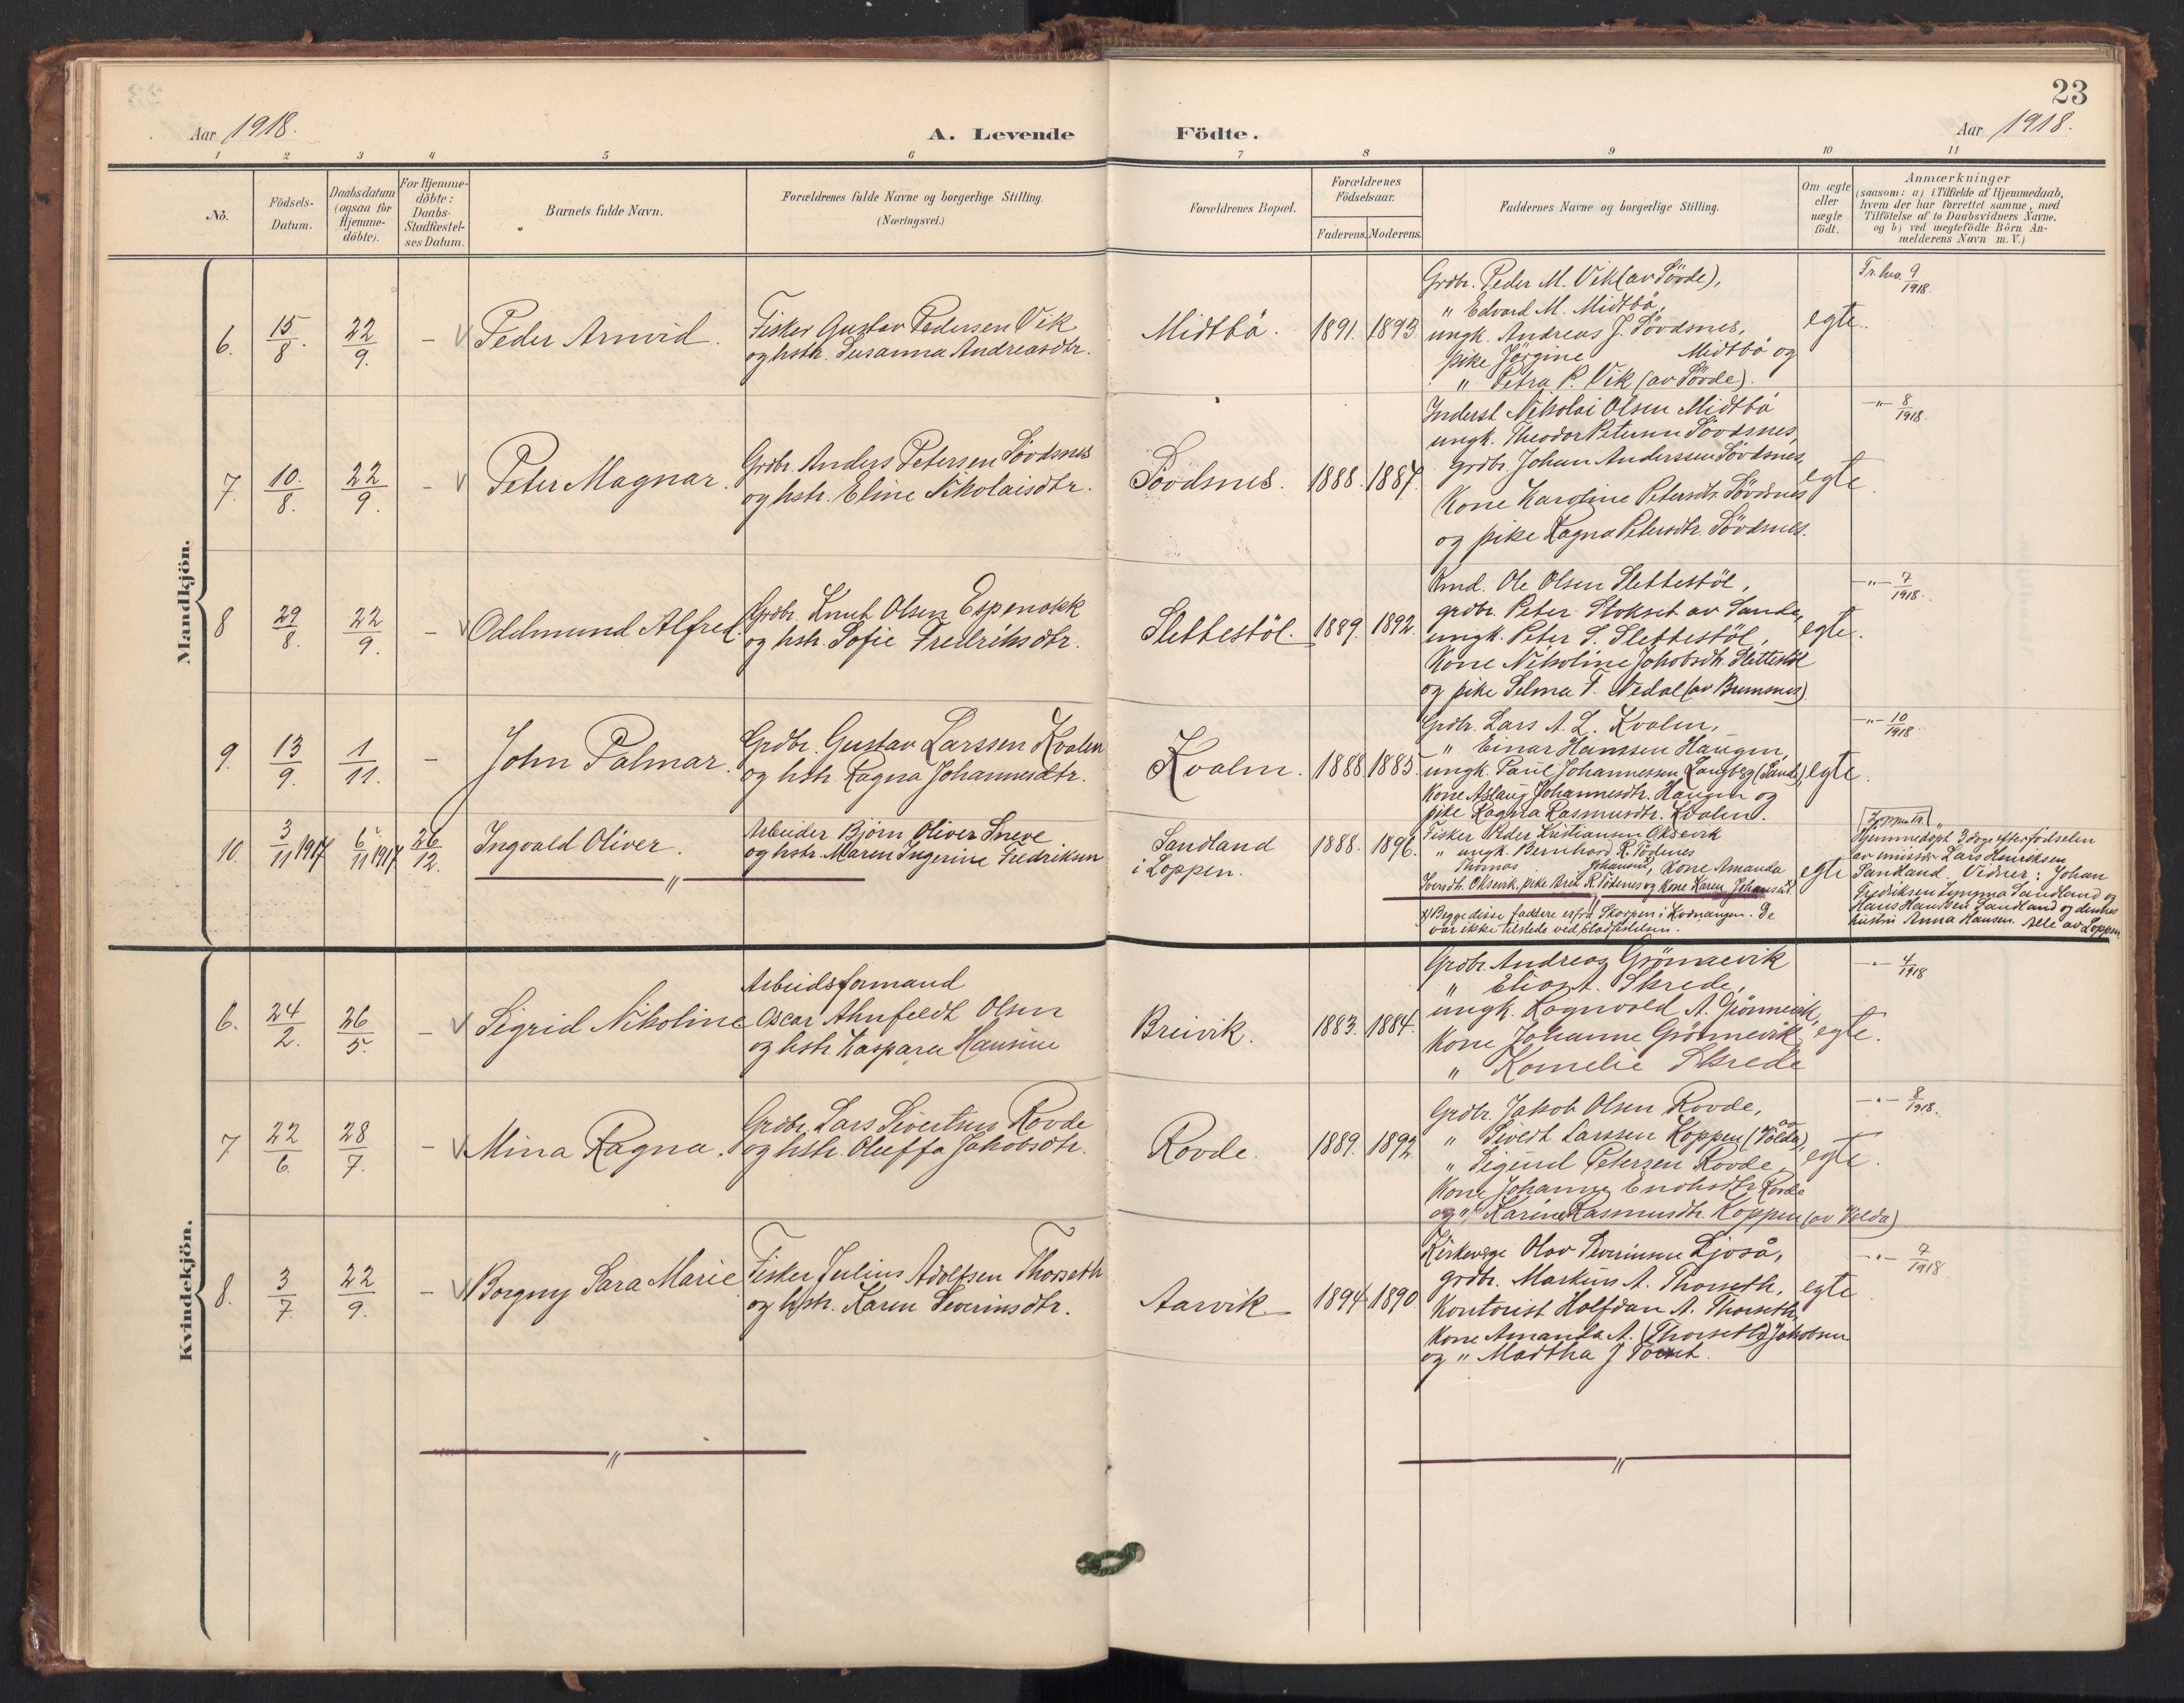 23
Aar 1918.
A. Levende
Födte.
Aar 1918.
1 2 3 4 5 6 7 8 9 10 11
No.
Födsels-
Datum.
Daabsdatum
(ogsaa for
Hjemme-
döbte).
For Hjemme-
döbte:
Daabs-
Stadfæstel-
ses Datum.
Barnets fulde Navn.
Forældrenes fulde Navne og borgerlige Stilling.
(Næringsvei.)
Forældrenes Bopæl.
Forældrenes
Födselsaar.
Faderens. Moderens.
Faddernes Navne og borgerlige Stilling.
Om ægte
eller
uægte
födt.
Anmærkninger
(saasom: a) i Tilfælde af Hjemmedaab,
hvem der har forrettet samme, med
Tilföielse af to Daabsvidners Navne,
og b) ved uægtefödte Börn An-
melderens Navn m. V.)
Mandkjön.
6. 15/8. 22/9. – Peder Arnvid.
Fisker Gustav Pedersen Vik
og hstr. Susanna Andreasdtr.
Midtbö. 1891. 1893.
Grdbr. Peder M. Vik (av Sövde),
" Edvard M. Midtbö,
ungk. Andreas J. Sövdsnes,
pike Jörgine Midtbö og
" Petra P. Vik (av Sövde).
egte.
9/1918.
7. 10./8. 22/9. – Peter Magnar.
Grdbr. Anders Petersen Sövdsnes
og hstr. Eline Nikolaisdtr.
Sövdsnes. 1888. 1887.
Inderst Nikolai Olsen Midtbö
ungk. Theodor Petersen Sövdsnes,
grdbr. Johan Anderssen Sövdsnes,
Kone Karoline Petersdtr. Sövdsnes
og pike Ragna Petersdtr. Sövdsnes.
egte.
–"– 8/1918.
8 29/8. 22/9. – Odelmund Alfred.
Grdbr. Knut Olsen Espenakk
og hstr. Sofie Fredriksdtr.
Slettestöl. 1889. 1892.
Kmd. Ole Olsen Slettestöl,
grdbr. Peter Stokset av Sande,
ungk. Peter S. Slettestöl,
Kone Nikoline Jakobsdtr. Slettestöl
og pike Selma F. Nedal (av Bumsnes).
egte.
–"– 7/1918.
9. 13/9. 1/11. – John Palmar.
Grdbr. Gustav Larssen Kvalm
og hstr. Ragna Johannesdtr.
Kvalm. 1888. 1885.
Grdbr. Lars A. L. Kvalm,
" Einar Hanssen Haugen,
ungk. Paul Johannessen Langberg (Sande),
Kone Aslaug Johannesdtr. Haugen og
pike Ragna Rasmusdtr. Kvalm.
egte.
–"– 10/1918.
10. 3/11 1917 6/11 1917 26/12. Ingvald Oliver.
Arbeider Bjørn Oliver Sneve
og hstr. Maren Ingerine Fredriksen
Sandland
i Loppen.
1888. 1896.
Fisker Peder Kristiansen Oksevik
" ungk. Bernhard R. Södenes
Thomas Johansen, Kone Amanda
Oksevik, pike Berit R. Södenes og Kone Karen Johansen
x) Begge disse faddere er fra Skorpen i Kvænangen. De
var ikke tilstede ved stadfæstelsen.
egte
Hjemmedöpt 3 dage efter födselen
av emissær Lars Henriksen
Sandland. Vidner: Johan
Fredriksen Sandland og
Hans Hansen Sandland og dennes
hustru Anna Hansen. Alle av Loppen.
Kvindekjön.
6. 24/2. 26/5. – Sigrid Nikoline
Arbeidsformand
Oscar Ahnfeldt Olsen
og hstr. Kaspara Hansine
Breivik. 1883. 1884.
Grdbr. Andreas Grönnevik
" Elias A. Skrede,
ungk. Ragnvald A. Grönnevik,
Kone Johanne Grönnevik
" Kornelie Skrede
egte.
–"– 4/1918
7 22/6. 28/7. – Mina Ragna.
Grdbr. Lars Sivertsen Rovde
og hstr. Oluffa Jakobsdtr.
Rovde. 1889. 1892.
Grdbr. Jakob Olsen Rovde,
" Sivert Larssen Koppen (av Volda),
" Sigurd Petersen Rovde,
Kone Johanne Enoksdtr. Rovde
og " Karine Rasmusdtr. Koppen (av Volda)
egte.
–"– 8/1918.
8. 3/7. 22/9. – Borgny Sara Marie
Fisker Julius Adolfsen Thorseth
og hstr. Karen Severinsdtr.
Aarvik. 1894 1890
Kirkeverge Olav Severinsen Ljoså,
grdbr. Markus A. Thorseth,
Kontorist Halfdan A. Thorseth,
Kone Amanda A. (Thorseth) Jakobsen
og " Madtha J
egte.
–"– 7/1918